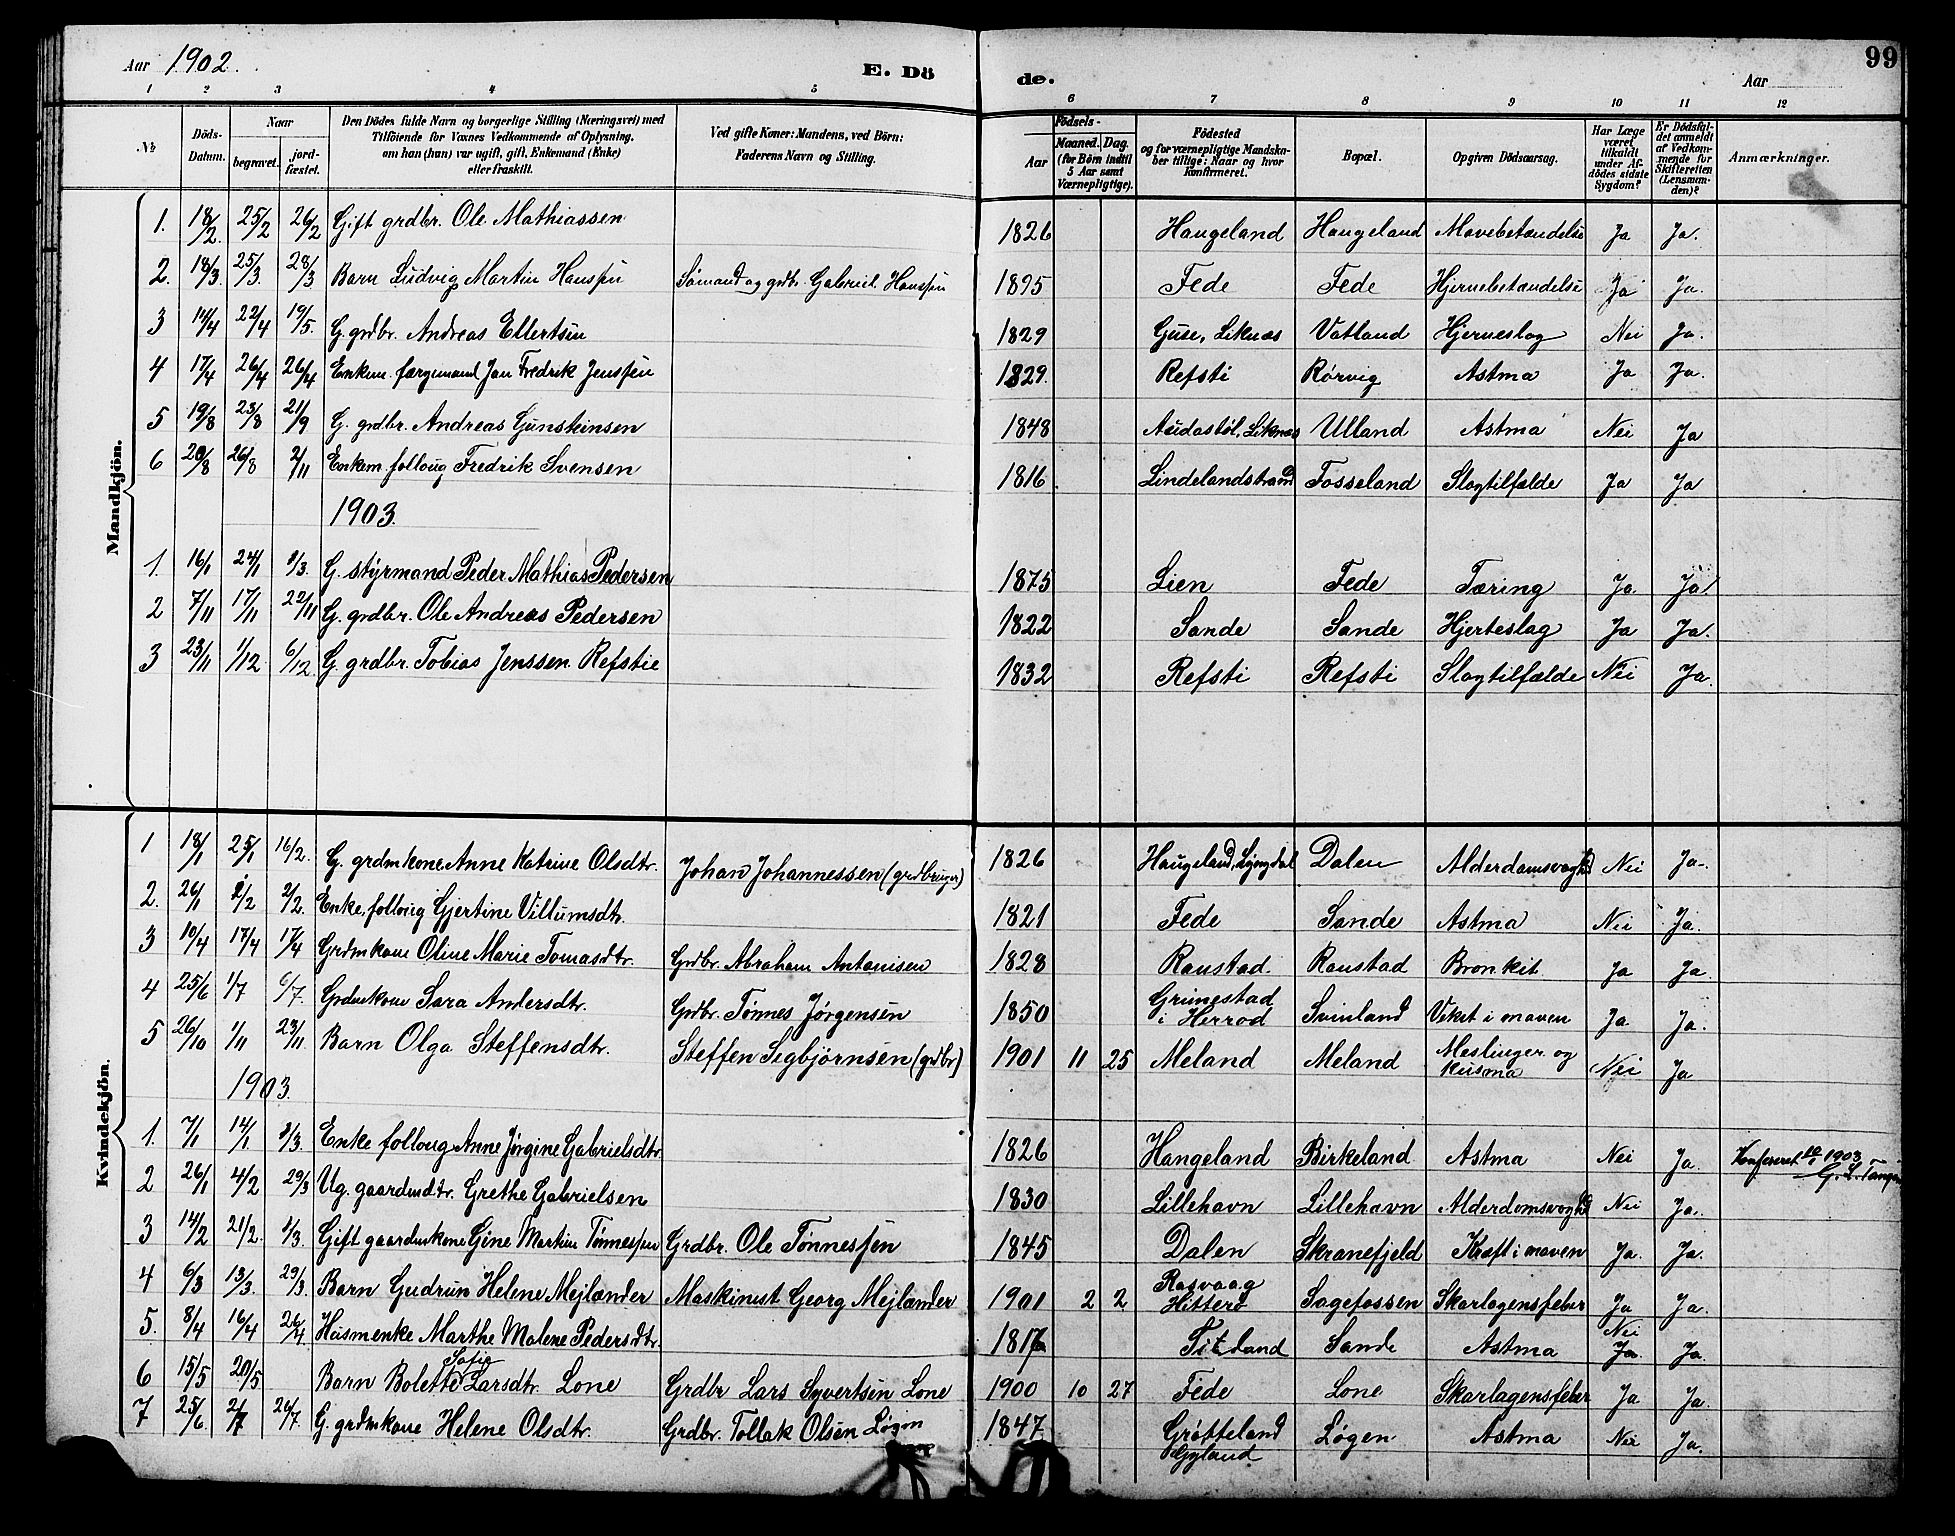 Aar 1902. E. Dö de. Aar 99
1 2 3 4 5 6 7 8 9 10 11 12
№ Döds-Datum. Naar begravet. jord-fæstet. Den Dödes fulde Navn og borgerlige Stilling (Næringsvei) med Tilföiende for Voxnes Vedkommende af Oplysning, om han (hun) var ugift, gift, Enkemand (Enke) eller fraskilt. Ved gifte Koner: Mandens, ved Börn: Faderens Navn og Stilling. Födsels- Aar Maaned. Dag. (for Börn indtil 5 Aar samt Værnepligtige). Födested og for værnepligtige Mandskaber tillige: Naar og hvor konfirmeret. Bopæl. Opgiven Dödsaarsag. Har Læge været tilkaldt under Afdödes sidste Sygdom? Er Dödsfaldet anmeldt af Vedkommende for Skifteretten (Lensmanden)? Anmærkninger.
Mandkjön.
1. 18/2 25/2 26/2 Gift grdbr. Ole Mathiassen 1826 Haugeland Haugeland Mavebetændelse Ja Ja.
2. 18/3. 25/3. 28/3 Barn Ludvig Martin Hanssen Sömand og grdbr. Gabriel Hanssen 1895 Fede Fede Hjernebetændelse Ja Ja.
3 14/4 22/4 19/5. G. grdbr. Andreas Ellertsen 1829 Guse, Liknæs Vatland Hjerneslag Nei Ja.
4 17/4 26/4 26/4 Enkem. færgemand Jan Fredrik Jenssen 1829. Refsti Rörvig Astma Ja Ja.
5 19/8 23/8 21/9 G. grdbr. Andreas Gunsteinsen 1848 Audastöl, Liknæs Ulland Astma Nei Ja
6 20/8 26/8 2/11 Enkem. folloug Fredrik Svensen 1816 Lindelandstrand Fosseland Slagtilfælde Ja Ja
1903.
1. 16/1 24/1 1/3. G. styrmand Peder Mathias Pedersen 1875 Lien Fede Tæring Ja Ja
2 7/11 17/11 22/11 G. grdbr. Ole Andreas Pedersen 1822 Sande Sande Hjerteslag Ja Ja.
3 23/11 1/12 6/12. G. grdbr. Tobias Jenssen Refstie 1832 Refsti Refsti Slagtilfælde Nei Ja.
Kvindekjön.
1 18/1 25/1 16/2. G. grdmkone Anne Katrine Olsdtr. Johan Johannessen (grdbruger) 1826 Haugeland, Lyngdal Dalen Alderdomsvaghd Nei Ja.
2. 26/1 2/2 2/2. Enke, folloug Gjertine Villumsdtr. 1821 Fede Sande Astma Nei Ja.
3 10/4 17/4 17/4 Grdmkone Oline Marie Tomasdtr. Grdbr. Abraham Antonisen 1828 Raustad. Raustad Bronkit Ja Ja.
4 25/6 1/7 6/7. Grdmkone Sara Andersdtr. Grdbr. Tønnes Jørgensen 1850 Grimestad i Herrød Svinland Vekst i maven Ja Ja.
5 26/10 1/11 23/11. Barn Olga Steffensdtr. Steffen Segbjørnsen (grdbr) 1901 11 25 Meland Meland Meslinger og kusma Nei Ja
1903.
1. 7/1 14/1 1/3. Enke folloug Anne Jørgine Gabrielsdtr. 1826 Haugeland Birkeland Astma Nei Ja Konfereret 1903
2 26/1 4/2 29/3 Ug. gaardmdtr. Grethe Gabrielsen 1830 Lillehavn Lillehavn Alderdomsvaghd Nei Ja.
3 14/2 21/2. 1/3. Gift gaardmkone Gine Martine Tønnessen Grdbr. Ole Tønnessen 1845 Dalen Skranefjeld Kræft i maven Ja. Ja.
4 6/3 13/3. 29/3. Barn Gudrun Helene Mejlænder Maskinist Georg Mejlænder 1901 2 2 Rasvaag Hitterø Sagefossen Skarlagensfeber Ja Ja.
5. 8/4 16/4 26/4 Husmenke Marthe Malene Pedersdtr. 1817 Titland Sande Astma Nei Ja Ja.
6 15/5 20/5 Barn Bolette Sofie Larsdtr. Lone Grdbr Lars Syvertsen Lone 1900 10 27 Fede Lone Skarlagensfeber Ja Ja.
7 25/6 2/7 26/7. G. grdmkone Helene Olsdtr. Grdbr. Tollak Olsen Løgen 1847 Grøtteland Gyland Løgen Astma Nei Ja.